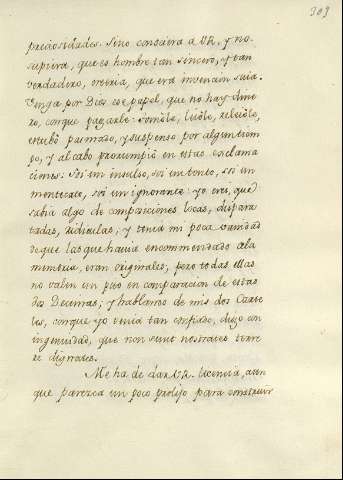 303
preciosidades. Sino conociera a VR. y no-
supiera, que es hombre tan sincero, y tan
verdadero, creiria, que era invencion suia.
Venga por Dios ese papel, que no hay dine-
ro, conque pagarle: tomòle, leiòle, releiòle,
estubò pasmado, y suspenso por algun tiem-
po, y al cabo prorrumpiò en estas exclama
ciones: Soi un insulso, soi un tonto, soi un
mentecato, soi un ignorante: yo crei, que
sabia algo de composiciones locas, dispara
tadas, ridiculas, y tenia mi poca vanidad
de que las que havia encommendado a la
memoria, eran originales; pero todas ellas
no valen un pito en comparacion de estas
dos Decimas; y hablando de mis dos Carte
les, conque yo venia tan confiado, digo con
ingenuidad, que non sunt nostrates terre
re digitales.
Me ha de dar VR. licencia, aun
que parezca un poco prolijo para construir